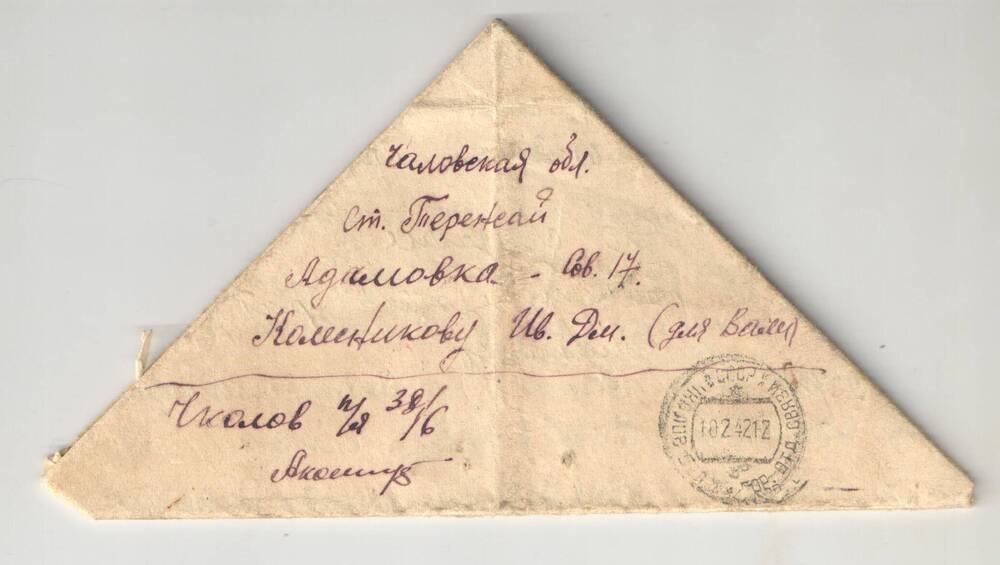 Чкаловская обл.
ст. Теренсай
Адамовка - Сов. 17.
Колесникову Ив. Дм. (для Вали)
Чкалов п/я 38/6
СССР
10 2 42 12